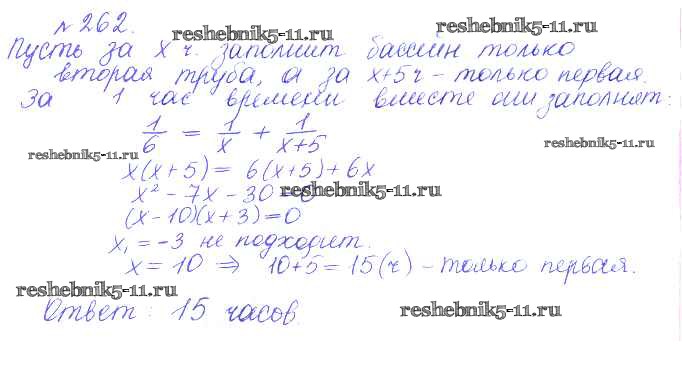 №262.
Пусть за x ч. заполнит бассейн только
вторая труба, а за x+5 ч - только первая.
За 1 час времени вместе они заполнят:
1/6 = 1/x + 1/(x+5)
x(x+5) = 6(x+5)+6x
x² - 7x - 30 = 0
(x-10)(x+3)=0
x₁ = -3 не подходит.
x = 10 ⇒ 10+5 = 15(ч) - только первая.
Ответ: 15 часов.
reshebnik5-11.ru
reshebnik5-11.ru
reshebnik5-11.ru
reshebnik5-11.ru
reshebnik5-11.ru
reshebnik5-11.ru
reshebnik5-11.ru